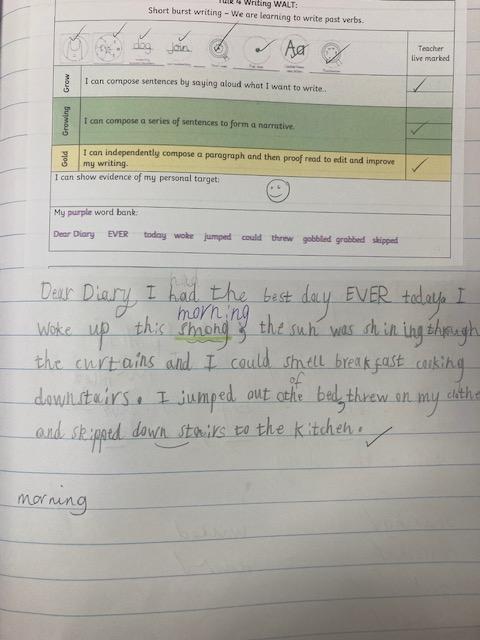 Talk 4 Writing WALT:
Short burst writing – We are learning to write past verbs.
dog
join
Aa
Teacher
live marked
Grow
I can compose sentences by saying aloud what I want to write..
Growing
I can compose a series of sentences to form a narrative.
Gold
I can independently compose a paragraph and then proof read to edit and improve
my writing.
I can show evidence of my personal target:
My purple word bank:
Dear Diary EVER today woke jumped could threw gobbled grabbed skipped
had
Dear Diary, I had the best day EVER today. I
morning
woke up this smong the sun was shining through
the curtains and I could smell breakfast cooking
downstairs. I jumped out of the bed, threw on my clothe
and skipped down stairs to the kitchen.
morning